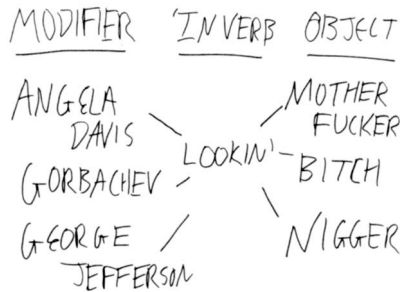 MODIFIER 'INVERB OBJECT
ANGELA
DAVIS
GORBACHEV
GEORGE
JEFFERSON
LOOKIN'
MOTHER
FUCKER
BITCH
NIGGER